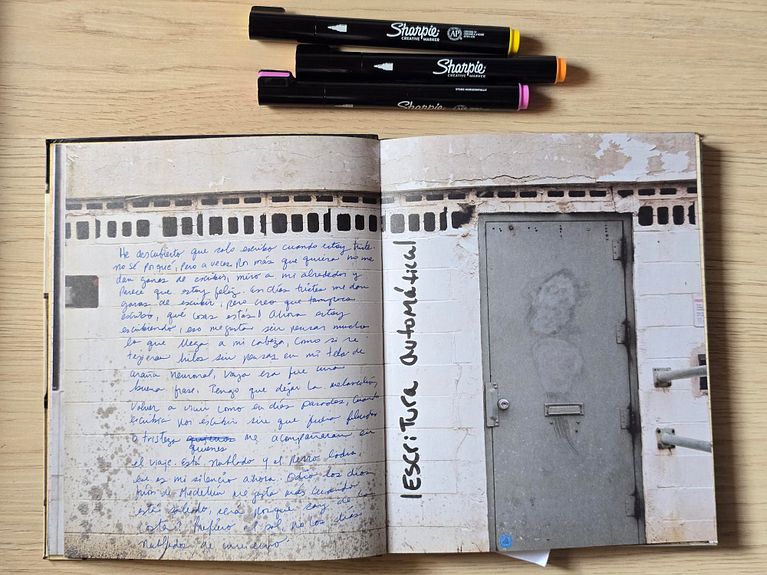 Sharpie
CREATIVE MARKER
AP
Sharpie
CREATIVE MARKER
Sharpie
CREATIVE MARKER
He descubierto que solo escribo cuando estoy triste.
no sé porqué, pero a veces por más que quiera no me
dan ganas de escribir, miro a mi alrededor y
parece que estoy feliz. En días tristes me dan
ganas de escribir, pero creo que tampoco
escribo, qué cosas estás! Ahora estoy
escribiendo, eso me gusta sin pensar mucho
lo que llega a mi cabeza, como si se
tejieran hilos sin pensar en mi tela de
araña neuronal, vaya esa fue una
buena frase. Tengo que dejar la
volver a vivir como en días pasados, cuando
escribía por escribir sin que fuera
o tristeza quienes me acompañaran en
el viaje. Está nublado y el perro ladra
en mi silencio ahora. Odio los días
fríos de Medellín me gusta más cuando
está soleado, será porque soy de la
costa? Prefiero el sol, no los días
nublados de invierno.
¡Escritura automática!